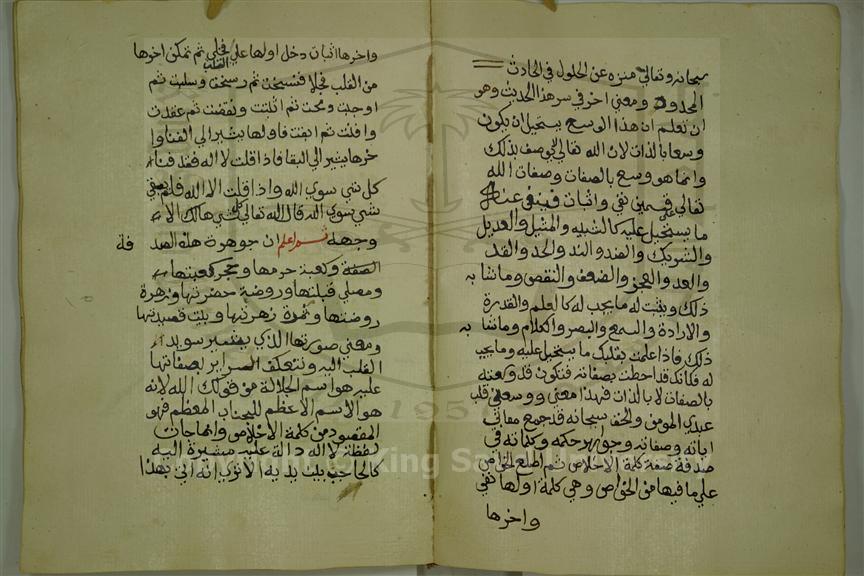 سبحانه وتعالى منزه عن الحلول في الحادث
المحدود ومعنى اخر في سر هذا الحديث وهو
ان تعلم ان هذا الوسع يستحيل ان يكون
وسعا بالذات لان الله تعالى لا يوصف بذلك
وانما هو وسع بالصفات وصفات الله
تعالى قسمين نفي واثبات فينفى عنه
ما يستحيل عليه كالشبيه والمثيل والعديل
والشريك والضد والند والحد والقد
والعد والعجز والضعف والنقص وما شابه
ذلك ويثبت له ما يجب له كالعلم والقدرة
والارادة والسمع والبصر والكلام وما شابه
ذلك فاذا علمت بقلبك ما يستحيل عليه وما يجب
له فكانك قد احطت بصفاته فتكون قد وسعته
بالصفات لا بالذات فهذا معنى ووسعني قلب
عبدي المومن والحق سبحانه قد جمع معاني
اياته وصفاته وجواهر حكمه وكلماته في
صدفة صفة كلمة الاخلاص ثم اطلع الخواص
علي ما فيها من الخواص وهي كلمة اولها نفي
واخرها
واخرها اثبات دخل اولها علي القلب فجلي ثم تمكن اخرها
من القلب فجلا فنسخت ثم رسخت وسلبت ثم
اوجبت ومحت ثم اثبتت ونقضت ثم عقدت
وافنت ثم ابقت فاولها يشير الي الفنا وا
خرها يشير الي البقا فاذا قلت لا اله فقد فنا
كل شي سوي الله واذا قلت الا الله فلم يبقي
شي سوي الله قال الله تعالى كل شي هالك الا
وجهه ثم اعلم ان جوهرة هذه الصد فة
الصفة وكعبة حرمها وحجر كعبتها
ومصلي قبلتها وروضة حضرتها وزهرة
روضتها وثمرة زهرتها وبيت قصيدتها
ومعني صورتها الذي يشير سويدا
القلب اليه وتعتكف السراير بصفاتها
عليه هو اسم الجلالة من قولك الله لانه
هو الاسم الاعظم للجناب المعظم فهو
المقصود من كلمة الاخلاص وانما جات
لفظة لا اله دالة عليه مشيرة اليه
كالحاجب بين يديه الا تري انه اتي بهذا